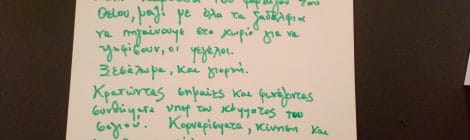 του φορτηγού του
θείου, μαζί με όλα τα ξαδέλφια
να πηγαίνουμε στο χωριό για να
ψηφίσουν, οι μεγάλοι.
Ξεσάλωμα, και γιορτή.
Κρατώντας σημαίες και φωνάζοντας
συνθήματα υπέρ του κόμματος του
σογιού. Κορναρίσματα, κίνηση και